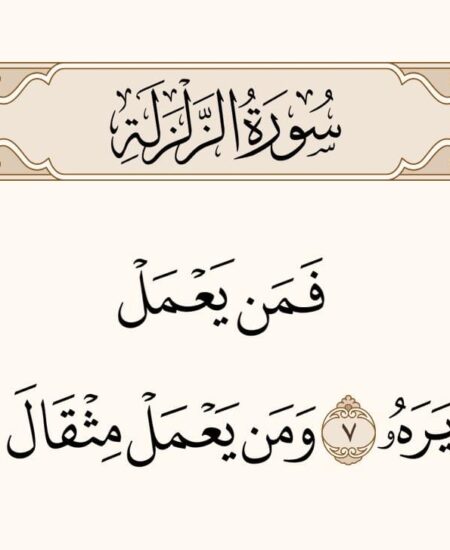 سُورَةُ الزَّلْزَلَةِ
فَمَن يَعْمَلْ
يَرَهُۥ ٧ وَمَن يَعْمَلْ مِثْقَالَ